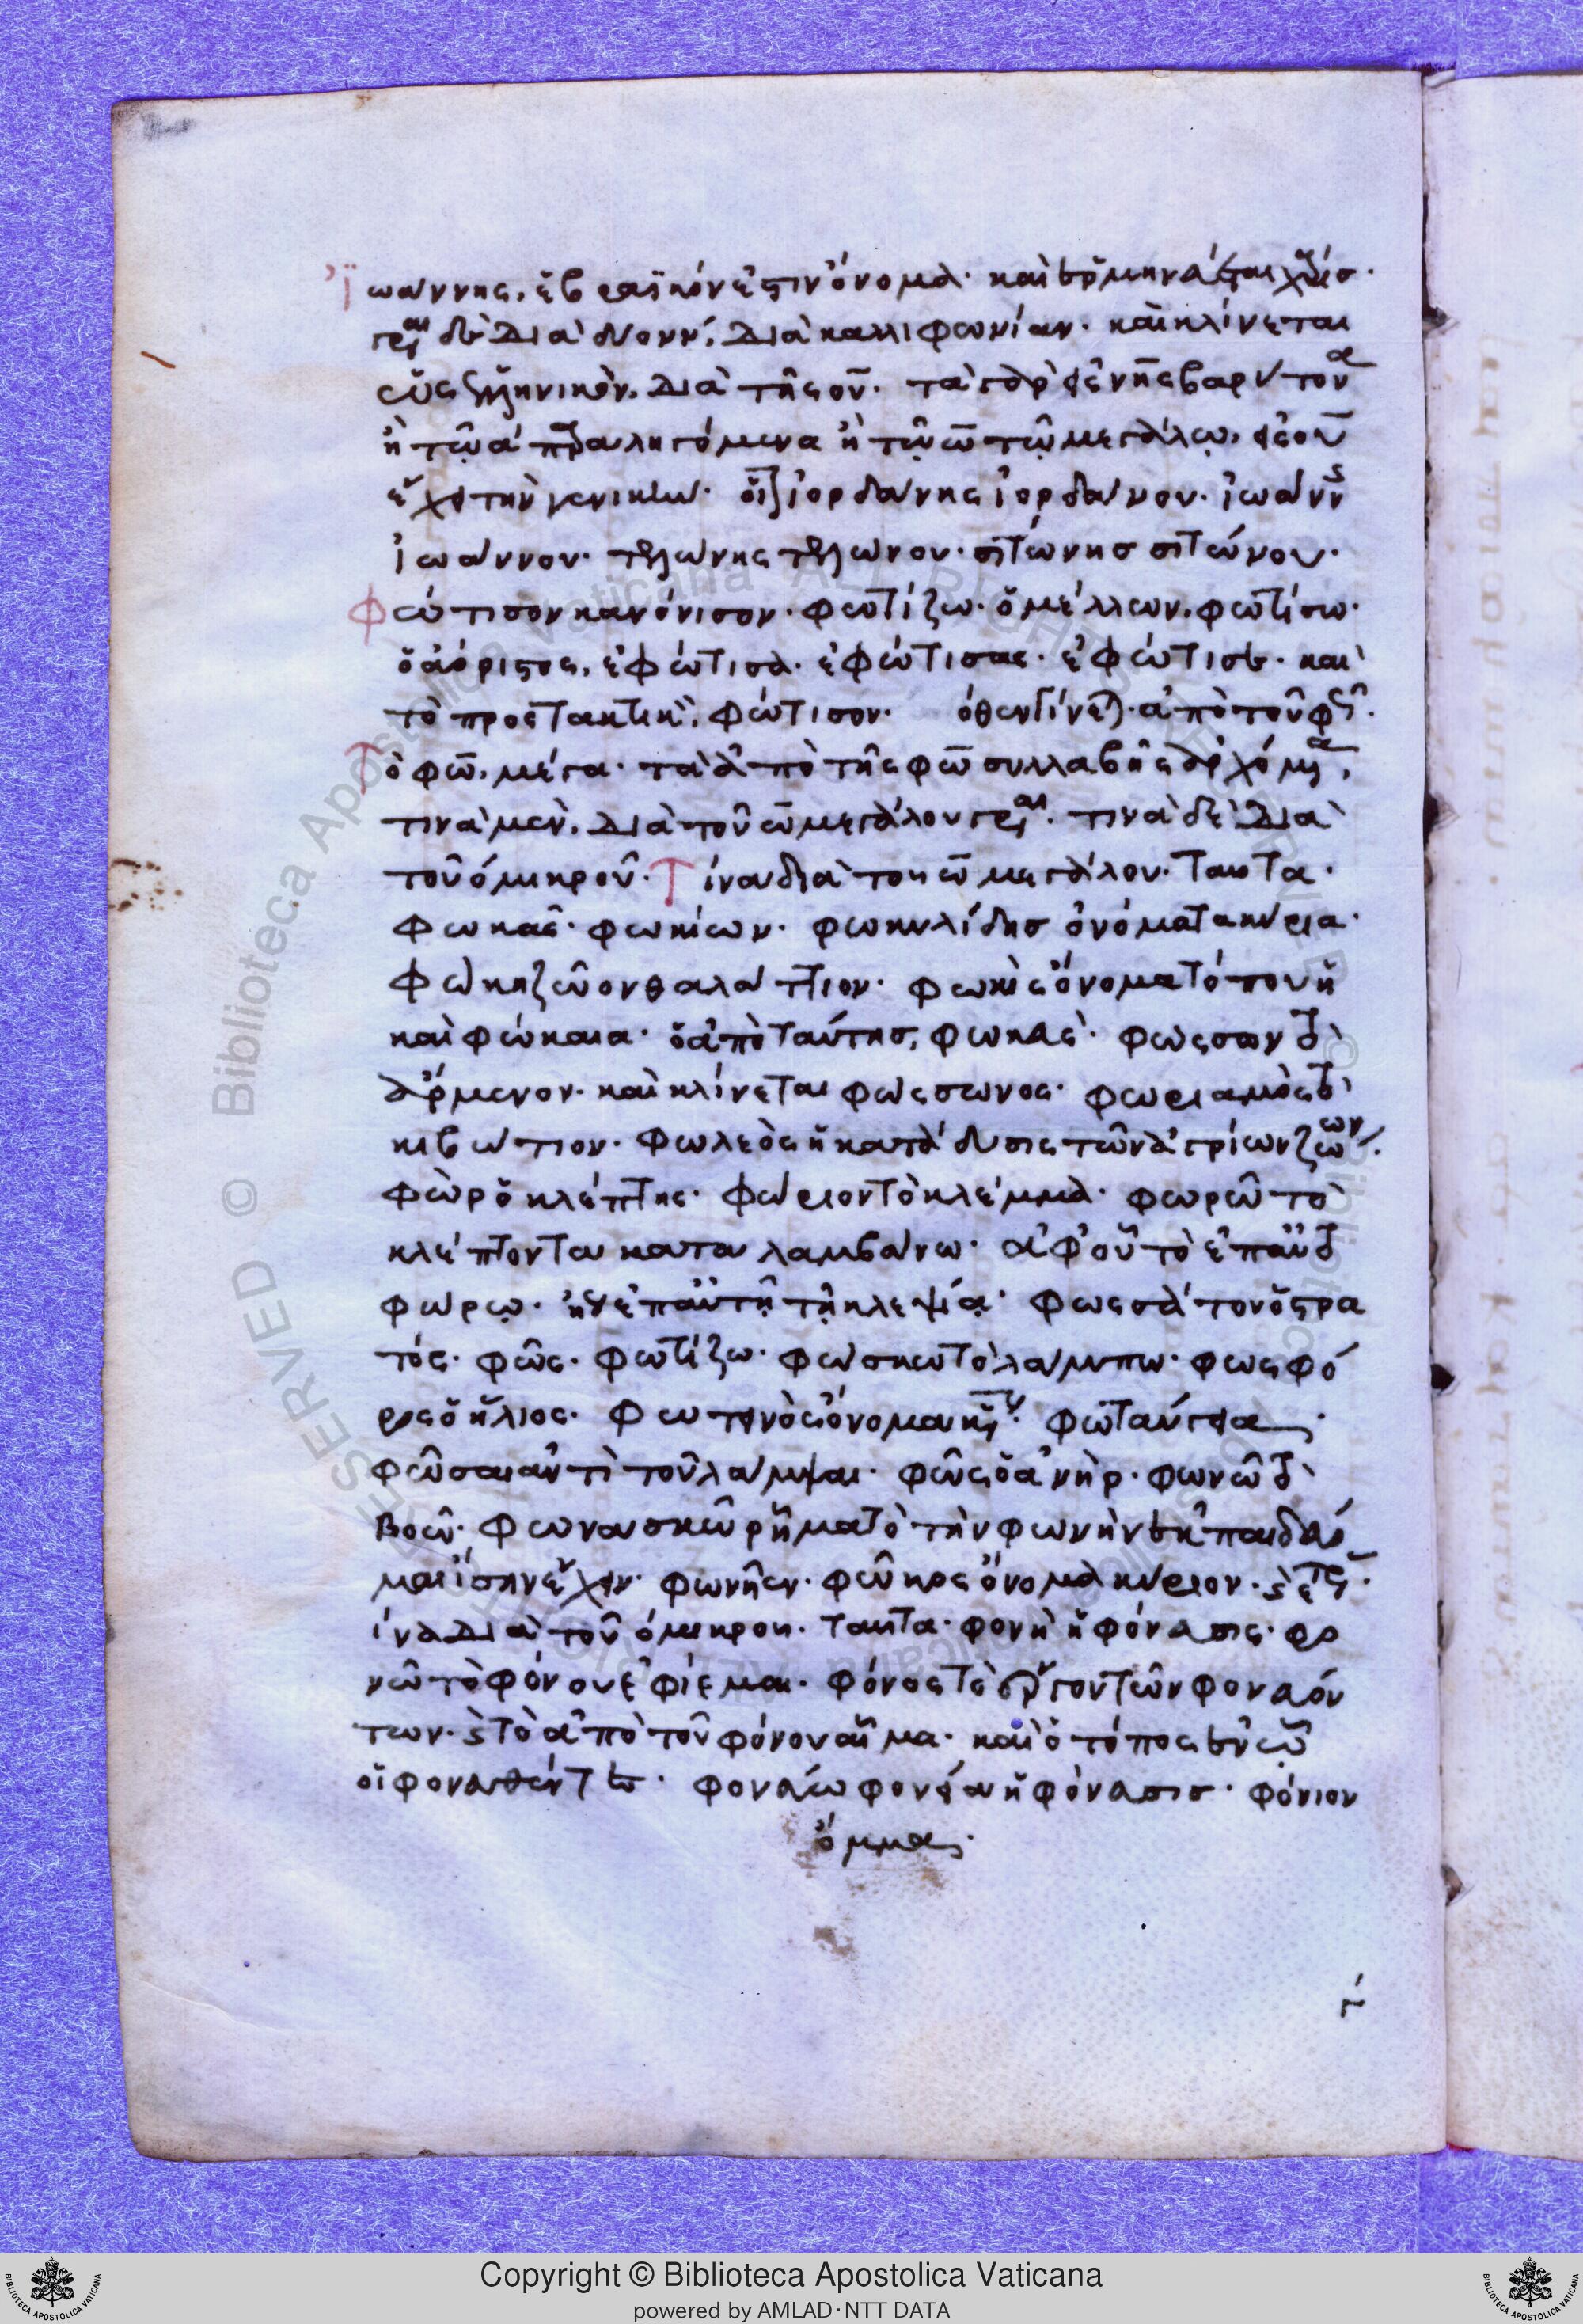 Ἰωάννης, ἑβραϊκόν ἐστιν ὄνομα· καὶ ἑρμηνεύεται χάρις·
γρ(άφετ)αι δὲ διὰ δύο νν, διὰ καλλιφωνίαν· καὶ κλίνεται
ὡς ἑλληνικὸν, διὰ τῆς ου· τὰ γὰρ εἰς νης βαρύτονα
ἢ τῷ α παραληγόμενα ἢ τῷ ω τῷ μεγάλῳ, εἰς ου
ἔχει τὴν γενικήν· οἷον ἰορδάνης ἰορδάνου· ἰωάννης
ἰωάννου· τελώνης τελώνου· σιτώνης σιτώνου·
Φώτισον κανόνισον· φωτίζω· ὁ μέλλων, φωτίσω·
ὁ ἀόριστος, ἐφώτισα· ἐφώτισας· ἐφώτισε· καὶ
τὸ προστακτικὸν, φώτισον· ὅθεν γίνεται· ἀπὸ τοῦ φῶς·
Τὸ φω, μέγα· τὰ ἀπὸ τῆς φω συλλαβῆς ἀρχόμενα,
τινὰ μὲν, διὰ τοῦ ω μεγάλου γρ(άφετ)αι· τινὰ δὲ διὰ
τοῦ ο μικροῦ· Τίνα διὰ του ω μεγάλου· ταῦτα·
Φωκᾶς· φωκίων· φωκυλίδης ὀνόματα κύρια·
Φώκη ζῶον θαλάττιον· φωκὶς ὄνομα τόπου ἢ
καὶ φώκαια· ὁ ἀπὸ ταύτης, φωκαεύς· φώσσων τὸ
ἄρμενον· καὶ κλίνεται φώσσωνος· φωριαμὸς τὸ
κιβώτιον· Φωλεὸς ἡ κατάδυσις τῶν ἀγρίων ζώων·
Φὼρ ὁ κλέπτης· φώριον τὸ κλέμμα· φωρῶ τὸ
κλέπτοντα καταλαμβάνω· ἀφ' οὗ τὸ ἐπ' αὐτο
φώρῳ· ἤγουν ἐπ' αὐτῇ τῇ κλεψίᾳ· Φωσσάτον ὁ στρα
τός· φῶς· φωτίζω· φώσκω τὸ λάμπω· φωσφό
ρος ὁ ἥλιος· Φωτεινὸς ὄνομα κύριον· φωταύγεια·
φῶσαι ἀντὶ τοῦ λάμψαι· φὼς ὁ ἀνήρ· φωνῶ τὸ
βοῶ· Φωνασκῶ ῥῆμα τὸ τὴν φωνὴν ἐκπαιδεύο
μαι ἰσχνεύειν· φωνῆεν· φῶκος ὄνομα κύριον·
ίνα διὰ τοῦ ο μικροῦ· ταῦτα· φονὴ ἡ φόνευσις· φο
νῶ τὸ φόνου ἐφίεμαι· φόνος τὸ ἔργον τῶν φονευόν
των· καὶ τὸ ἀπὸ τοῦ φόνου αἷμα· καὶ ὁ τόπος ἐν ᾧ
οἱ φονευθέντες· φονεύω φονεία ἡ φόνευσις· φόνιον
ὄμμα·
γ